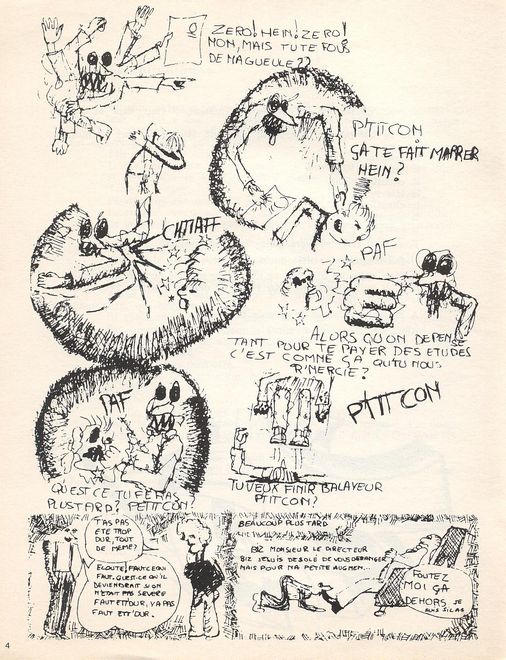 ZERO! HEIN! ZERO!
NON, MAIS TU TE FOUS
DE MA GUEULE??
P'TIT CON!
ÇA TE FAIT MARRER
HEIN?
CHTIAFF
PAF
ALORS QU'ON DEPENSE
TANT POUR TE PAYER DES ETUDES
C'EST COMME ÇA QU'TU NOUS
R'MERCIE?
PAF
QU'EST CE TU F'ERAS
PLUS TARD? PETIT CON?
P'TIT CON
TU VEUX FINIR BALAYEUR
PTIT CON?
T'AS PAS
ÉTÉ TROP
DUR, TOUT
DE MÊME?
ECOUTE! FAUT C'EQU'IL
FAUT. QU'EST-CE QU'IL
DEVIENDRAIT SI ON
N'ETAIT PAS SEVERE
FAUT ETT'DUR, Y'A PAS
FAUT ETT'DUR.
BEAUCOUP PLUS TARD
BIZ MONSIEUR LE DIRECTEUR
BIZ JE SUIS DESOLÉ DE VOUS DERANGER
MAIS POUR MA PETITE AUGMEN..
FOUTEZ
MOI ÇA
DEHORS JE
SUIS
4